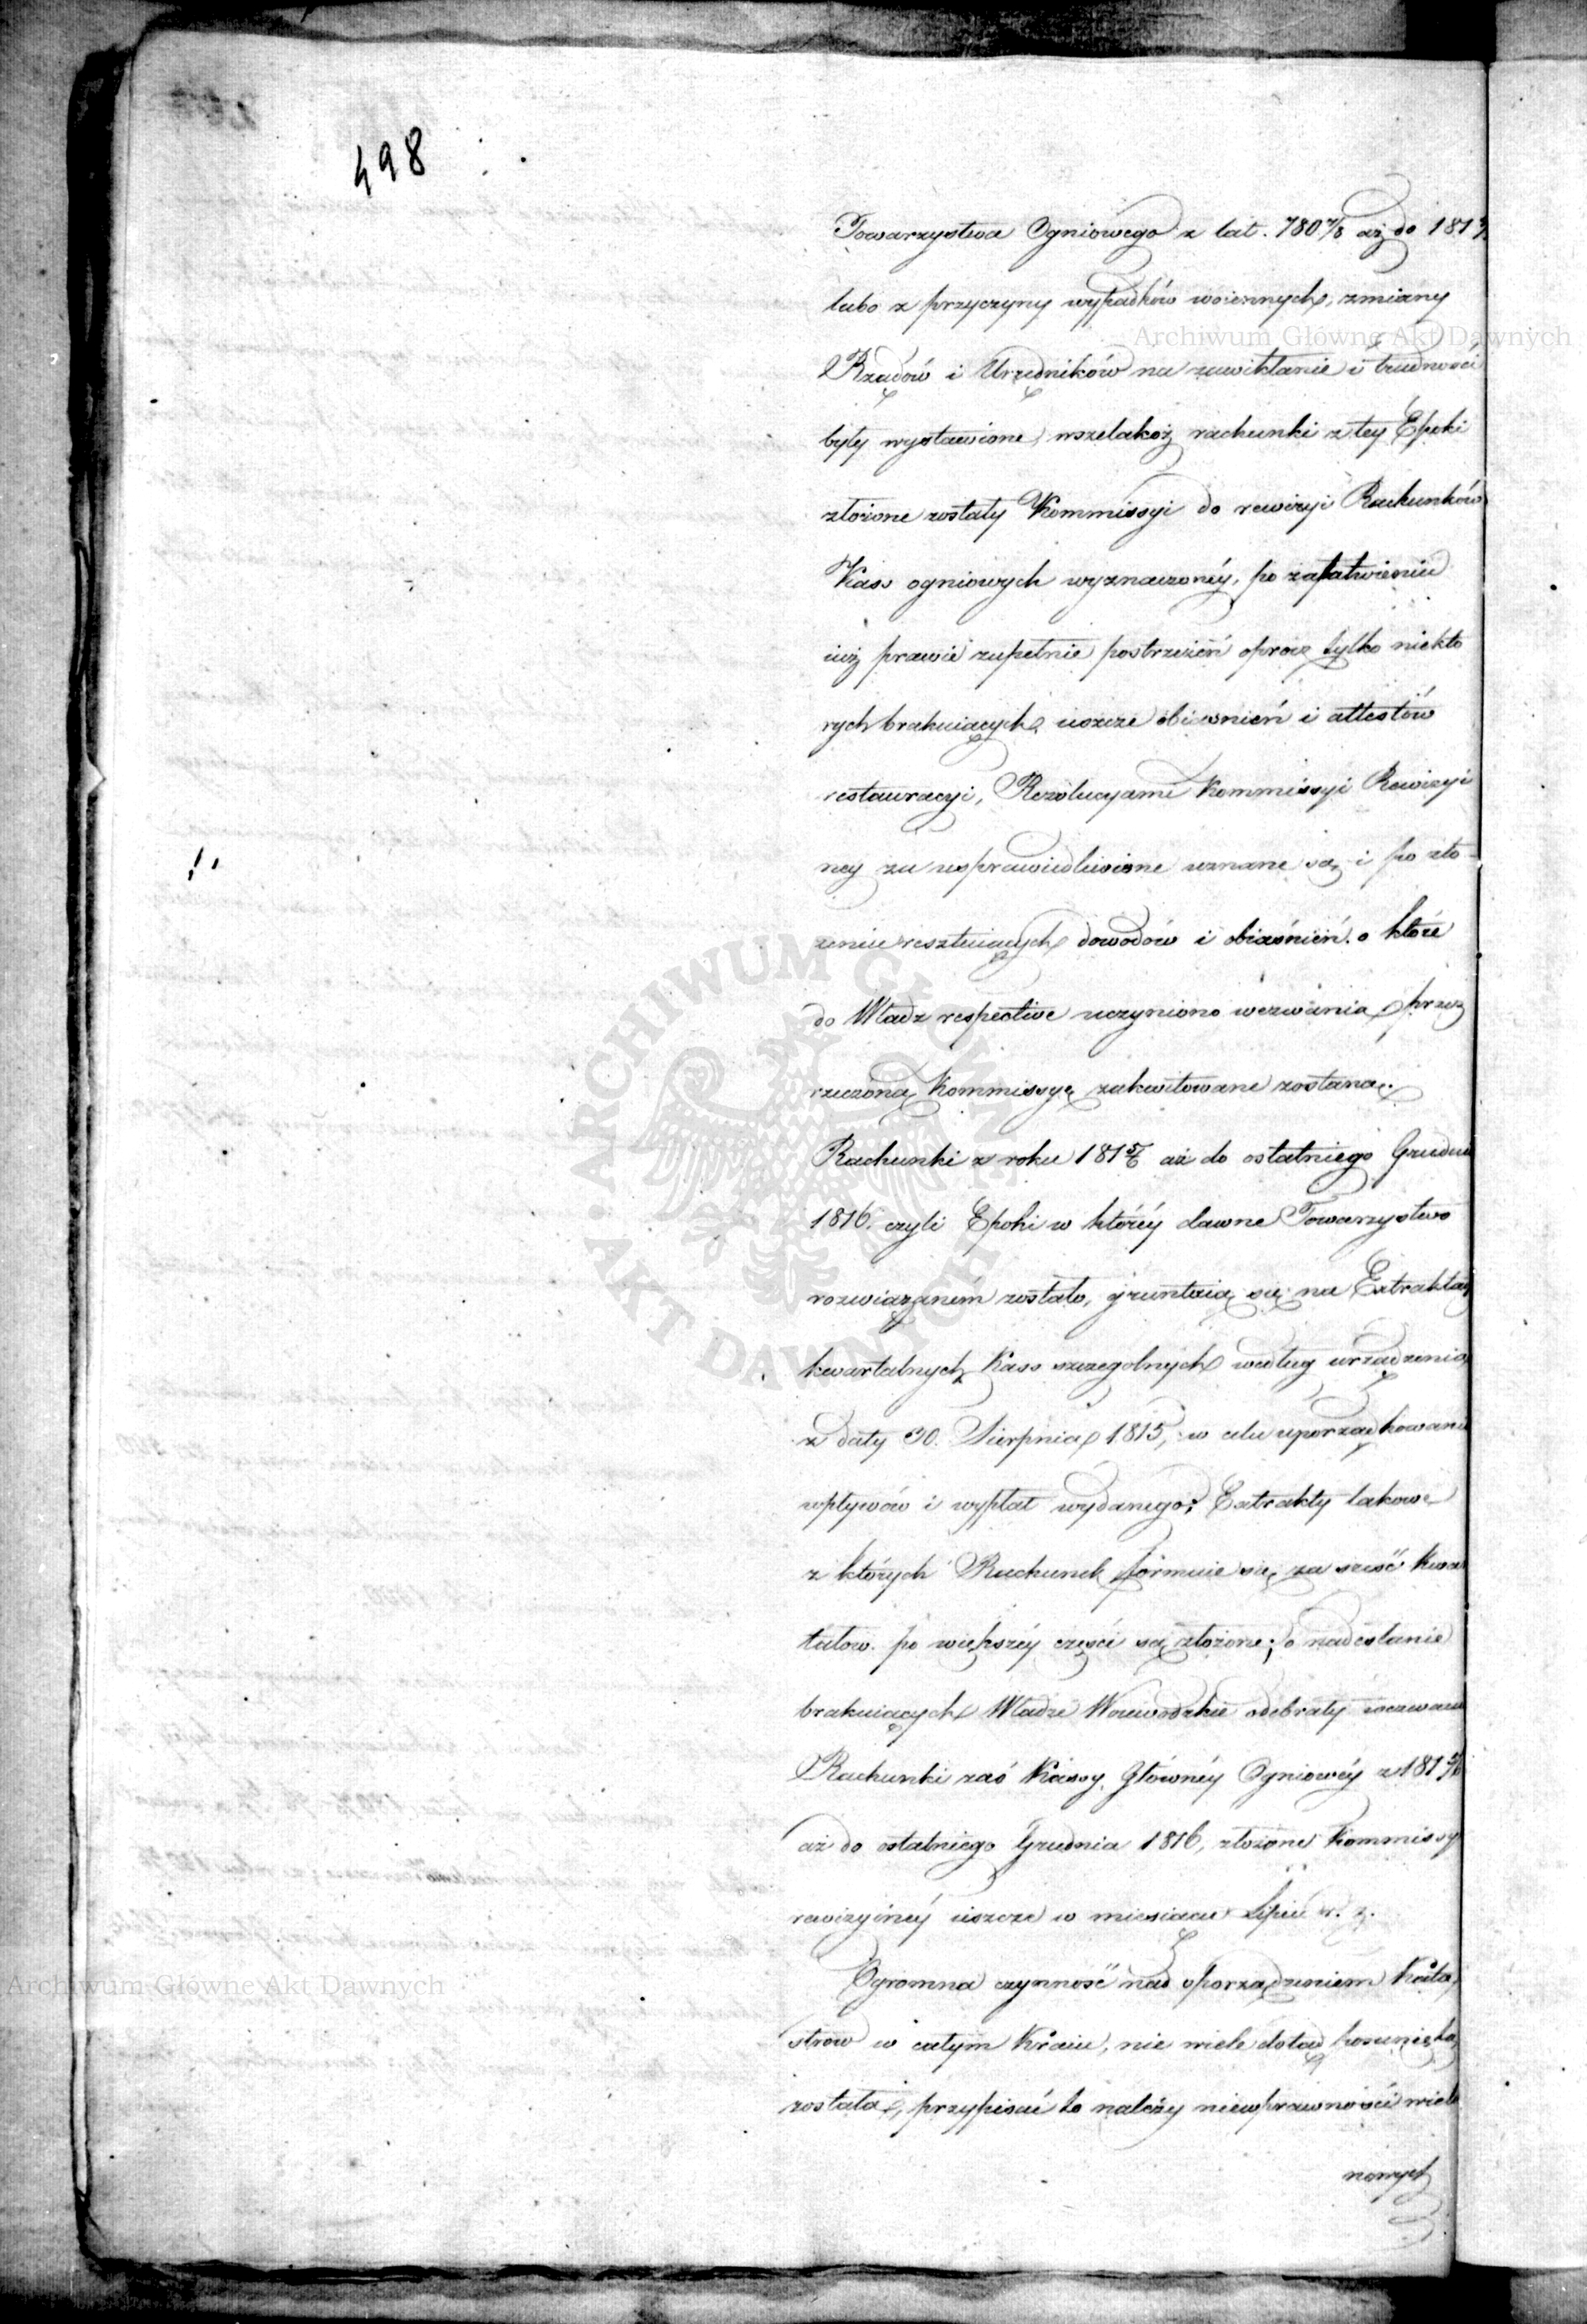 498
Towarzystwa Ogniowego z lat. 180 7/8 aż do 181
lubo z przyczyny wypadków woiennych, zmiany
Rządów i Urzędników na zawikłanie i trudności
były wystawione, wszelakoż rachunki z tey Epoki
złożone zostały Kommissyi do rewizyi Rachunków
Kass ogniowych wyznaczonéy, po załatwieniu
iuż prawie zupełnie postrzeżeń oprocz tylko niektó
rych brakuiących ieszcze obiaśnień i attestów
restauracyi, Rezolucyami Kommissyi Rewizyi
ney za usprawiedliwione uznane są i po zło-
żeniu resztuiących dowodów i obiaśnień o które
do Władz respective uczyniono wezwania, przez
rzeczoną Kommissyę zakwitowane zostaną.
Rachunki z roku 181 5/6 aż do ostatniego Grudnia
1816. czyli Epoki w któréy dawne Towarzystwo
rozwiązaném zostało, gruntuią się na Extraktach
kwartalnych Kass szczegolnych według urządzenia
z daty 30. Sierpnia 1815, w celu uporządkowania
wpływów i wypłat wydanego; Extrakty takowe
z których Rachunek formuie się za sześć kwar
tałow po większéy części są złożone; o nadesłanie
brakuiących Władze Woiewódzkie odebrały wezwanie
Rachunki zaś Kassy Główney Ogniowéy z 181 5/6
aż do ostatniego Grudnia 1816, złożone Kommissyi
rewizyinéy ieszcze w miesiącu Lipcu r. z.
Ogromna czynność nad sporządzeniem Kata,
strow w całym Kraiu, nie wiele dotąd posuniętą
została, przypisać to należy niewprawności wielu
nowych
!
Archiwum Główne Akt Dawnych
Archiwum Główne Akt Dawnych
ARCHIWUM GŁÓWNE AKT DAWNYCH